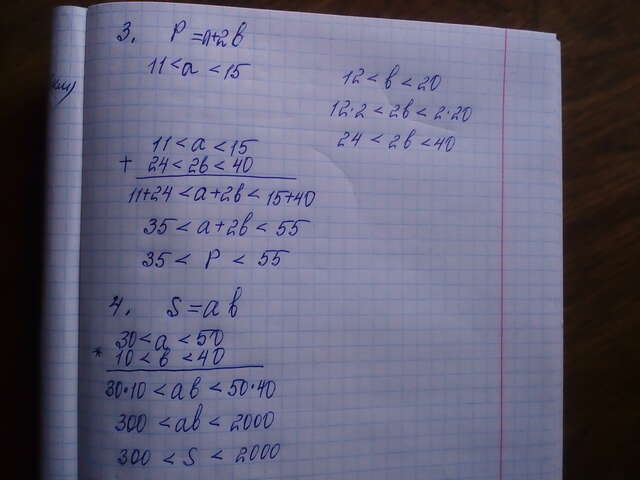 3. P = a+2b
11 < a < 15
12 < b < 20
12·2 < 2b < 2·20
24 < 2b < 40
11 < a < 15
+ 24 < 2b < 40
11+24 < a+2b < 15+40
35 < a+2b < 55
35 < P < 55
4. S = a b
30 < a < 50
* 10 < b < 40
30·10 < ab < 50·40
300 < ab < 2000
300 < S < 2000